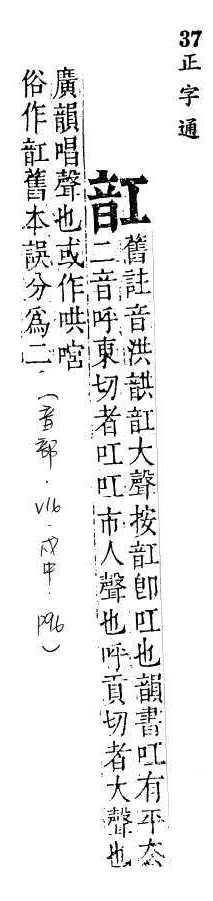 37 正字通
䪦
舊註音洪䪦大聲按䪦卽叿也韻書叿有平厺
二音呼東切者叿叿市人聲也呼貢切者大聲也
廣韻唱聲也或作哄啌
俗作䪦舊本誤分爲二
(音部.V16.戌中.P96)